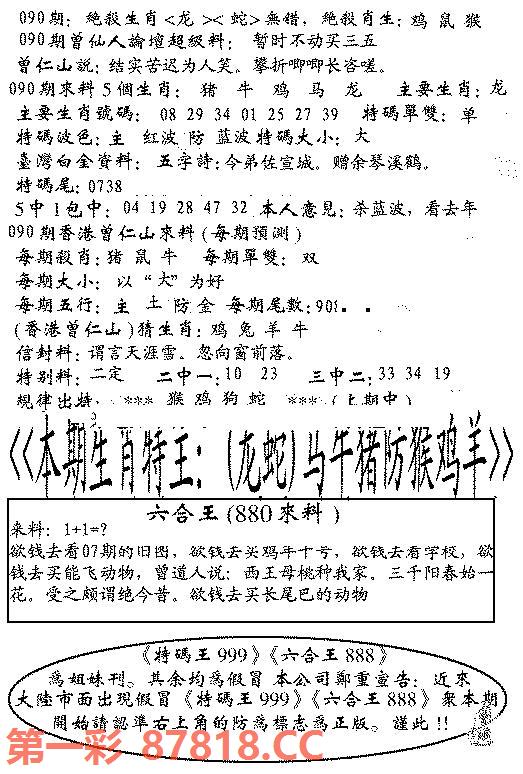 090期: 绝殺生肖<龙 ><蛇>無錯, 绝殺肖生: 鸡 鼠 猴
090期曾仙人論壇超級料: 暂时不动买三五
曾仁山説: 结实苦迟为人笑。攀折唧唧长咨嗟。
090期來料5個生肖: 猪 牛 鸡 马 龙 主要生肖: 龙
主要生肖號碼: 08 29 34 01 25 27 39 特碼單雙: 单
特碼波色: 主 红波 防 蓝波 特碼大小: 大
臺灣白金資料: 五字詩: 令弟佐宣城。赠余琴溪鹤。
特碼尾: 0738
5中1包中: 04 19 28 47 32 本人意見: 杀蓝波, 看去年
090期香港曾仁山來料(每期預測)
每期殺肖: 猪 鼠 牛 每期單雙: 双
每期大小: 以“大”为好
每期五行: 主 土 防 金 每期尾數: 908
(香港曾仁山)猜生肖: 鸡 兔 羊 牛
信封料: 谓言天涯雪。忽向窗前落。
特别料: 二定 二中一: 10 23 三中二: 33 34 19
規律出特: *** 猴 鸡 狗 蛇 *** (上期中)
《本期生肖特王: (龙蛇)马牛猪防猴鸡羊》
六合王(880來料)
来料: 1+1=?
欲钱去看07期的旧图, 欲钱去买鸡年十号, 欲钱去看学校, 欲
钱去买能飞动物, 曾道人说: 西王母桃种我家。三千阳春始一
花。受之颇谓绝今昔。欲钱去买长尾巴的动物
《特碼王999》《六合王888》
爲姐妹刊。其余均爲假冒 本公司鄭重宣告: 近來
大陸市面出現假冒《特碼王999》《六合王888》衆本期
開始請認準右上角的防爲標志爲正版。謹此!!
第一彩 87818.CC